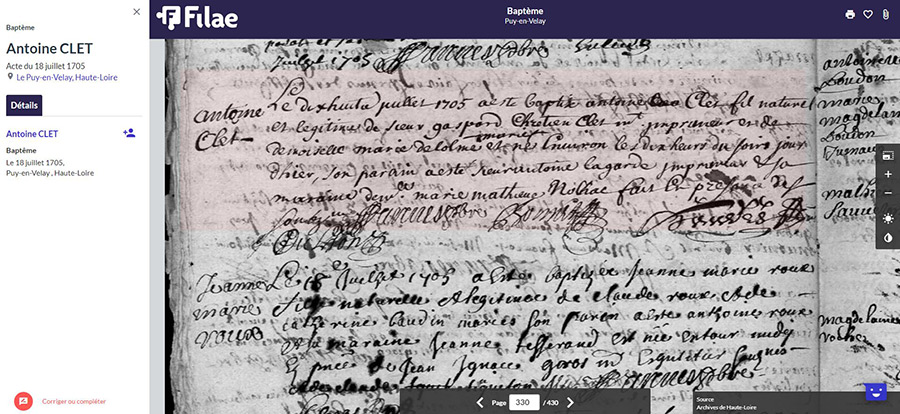 Baptême
Antoine CLET
Acte du 18 juillet 1705
Le Puy-en-Velay, Haute-Loire
Détails
Antoine CLET
Baptême
Le 18 juillet 1705,
Puy-en-Velay , Haute-Loire
Corriger ou compléter
Filae
Baptême
Puy-en-Velay
juillet 1705
Antoine
Clet
Le dixhuit juillet 1705 a este baptisé antoine Clet fil naturel
et legitime de sieur gaspard Chrétien Clet mᵉ imprimeur et de
demoiselle marie delolme mariés et né environ les dix heurs du soir jour
d'hier, son parain a este sieur antoine lagarde imprimeur & sa
maraine demᵉˡˡᵉ marie matheve Nolhac fait en presence des
Jeanne
marie
roux
Le 18 Juillet 1705 a esté baptisée Jeanne marie roux
fille naturelle & legitime de claude roux & de
catherine baudin mariés son parein a este anthoine roux
et la maraine jeanne tesserand est née entour midy
en pnce de Jean Ignace
et de claude
antoinette
Boudon
marie
magdelaine
magdelaine
Page 330 / 430
Source
Archives de Haute-Loire